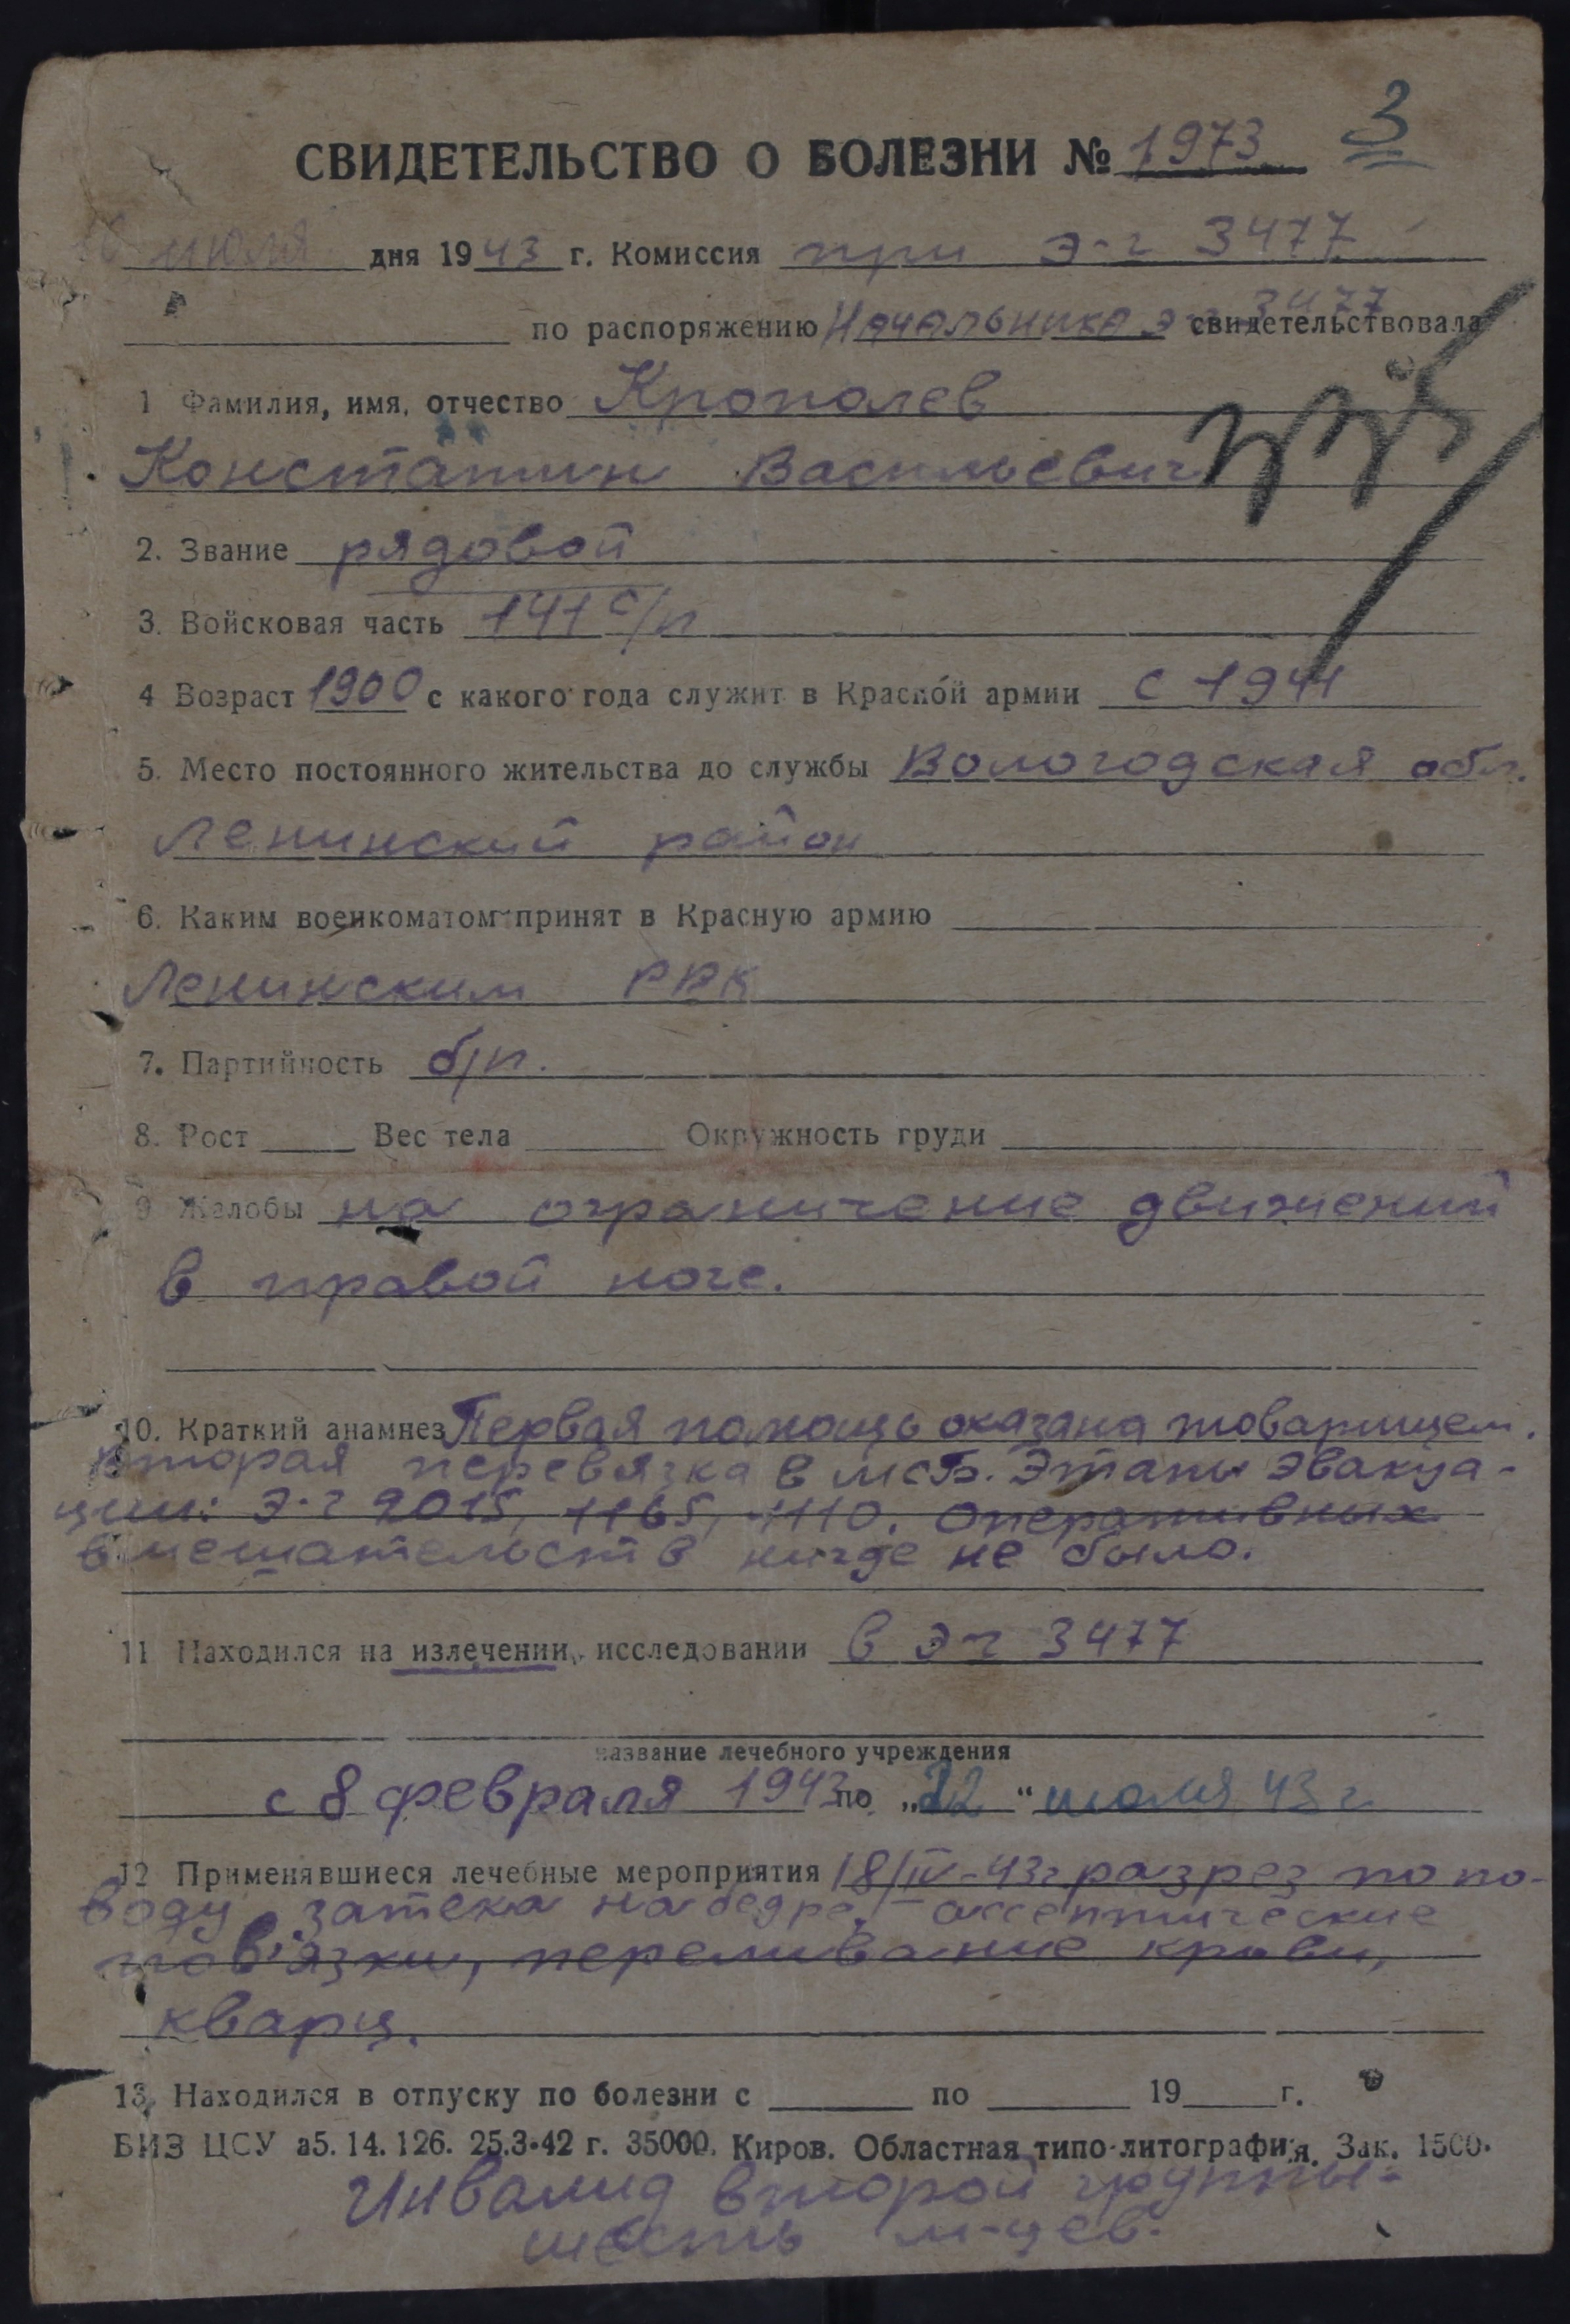 3
СВИДЕТЕЛЬСТВО О БОЛЕЗНИ № 1973
июля дня 1943 г. Комиссия при э-г 3477
по распоряжению Начальника э-г 3477 свидетельствовала
1 Фамилия, имя, отчество Кропалев
Константин Васильевич
2. Звание рядовой
3. Войсковая часть 141 с/п
4 Возраст 1900 с какого года служит в Красной армии с 1941
5. Место постоянного жительства до службы Вологодская обл.
Ленинский район
6. Каким военкоматом принят в Красную армию
Ленинским РВК
7. Партийность б/п.
8. Рост Вес тела Окружность груди
9 Жалобы на ограничение движений
в правой ноге.
10. Краткий анамнез Первая помощь оказана товарищем.
Вторая перевязка в мсб. Этапы эвакуа-
ции: э-г 2015, 1165, 1110. Оперативных
вмешательств нигде не было.
11 Находился на излечении, исследовании в эг 3477
название лечебного учреждения
с 8 февраля 1943 по „22“ июля 43 г.
12 Применявшиеся лечебные мероприятия 18/IV-43г разрез по по-
воду затека на бедре, ассептические
пов'язки, переливание крови,
кварц.
13. Находился в отпуску по болезни с по 19 г.
БИЗ ЦСУ а5. 14. 126. 25.3-42 г. 35000. Киров. Областная типо-литография. Зак. 1500.
Инвалид второй группы-
шесть м-цев.